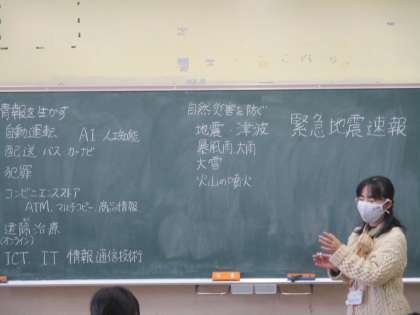 情報を生かす
自動運転　AI 人工知能
配送 バス カーナビ
犯罪
コンビニエンスストア
ATM、マルチコピー、商品情報
遠隔治療
(オンライン)
ICT IT 情報通信技術
自然災害を防ぐ
地震・津波
暴風雨、大雨
大雪
火山の噴火
緊急地震速報